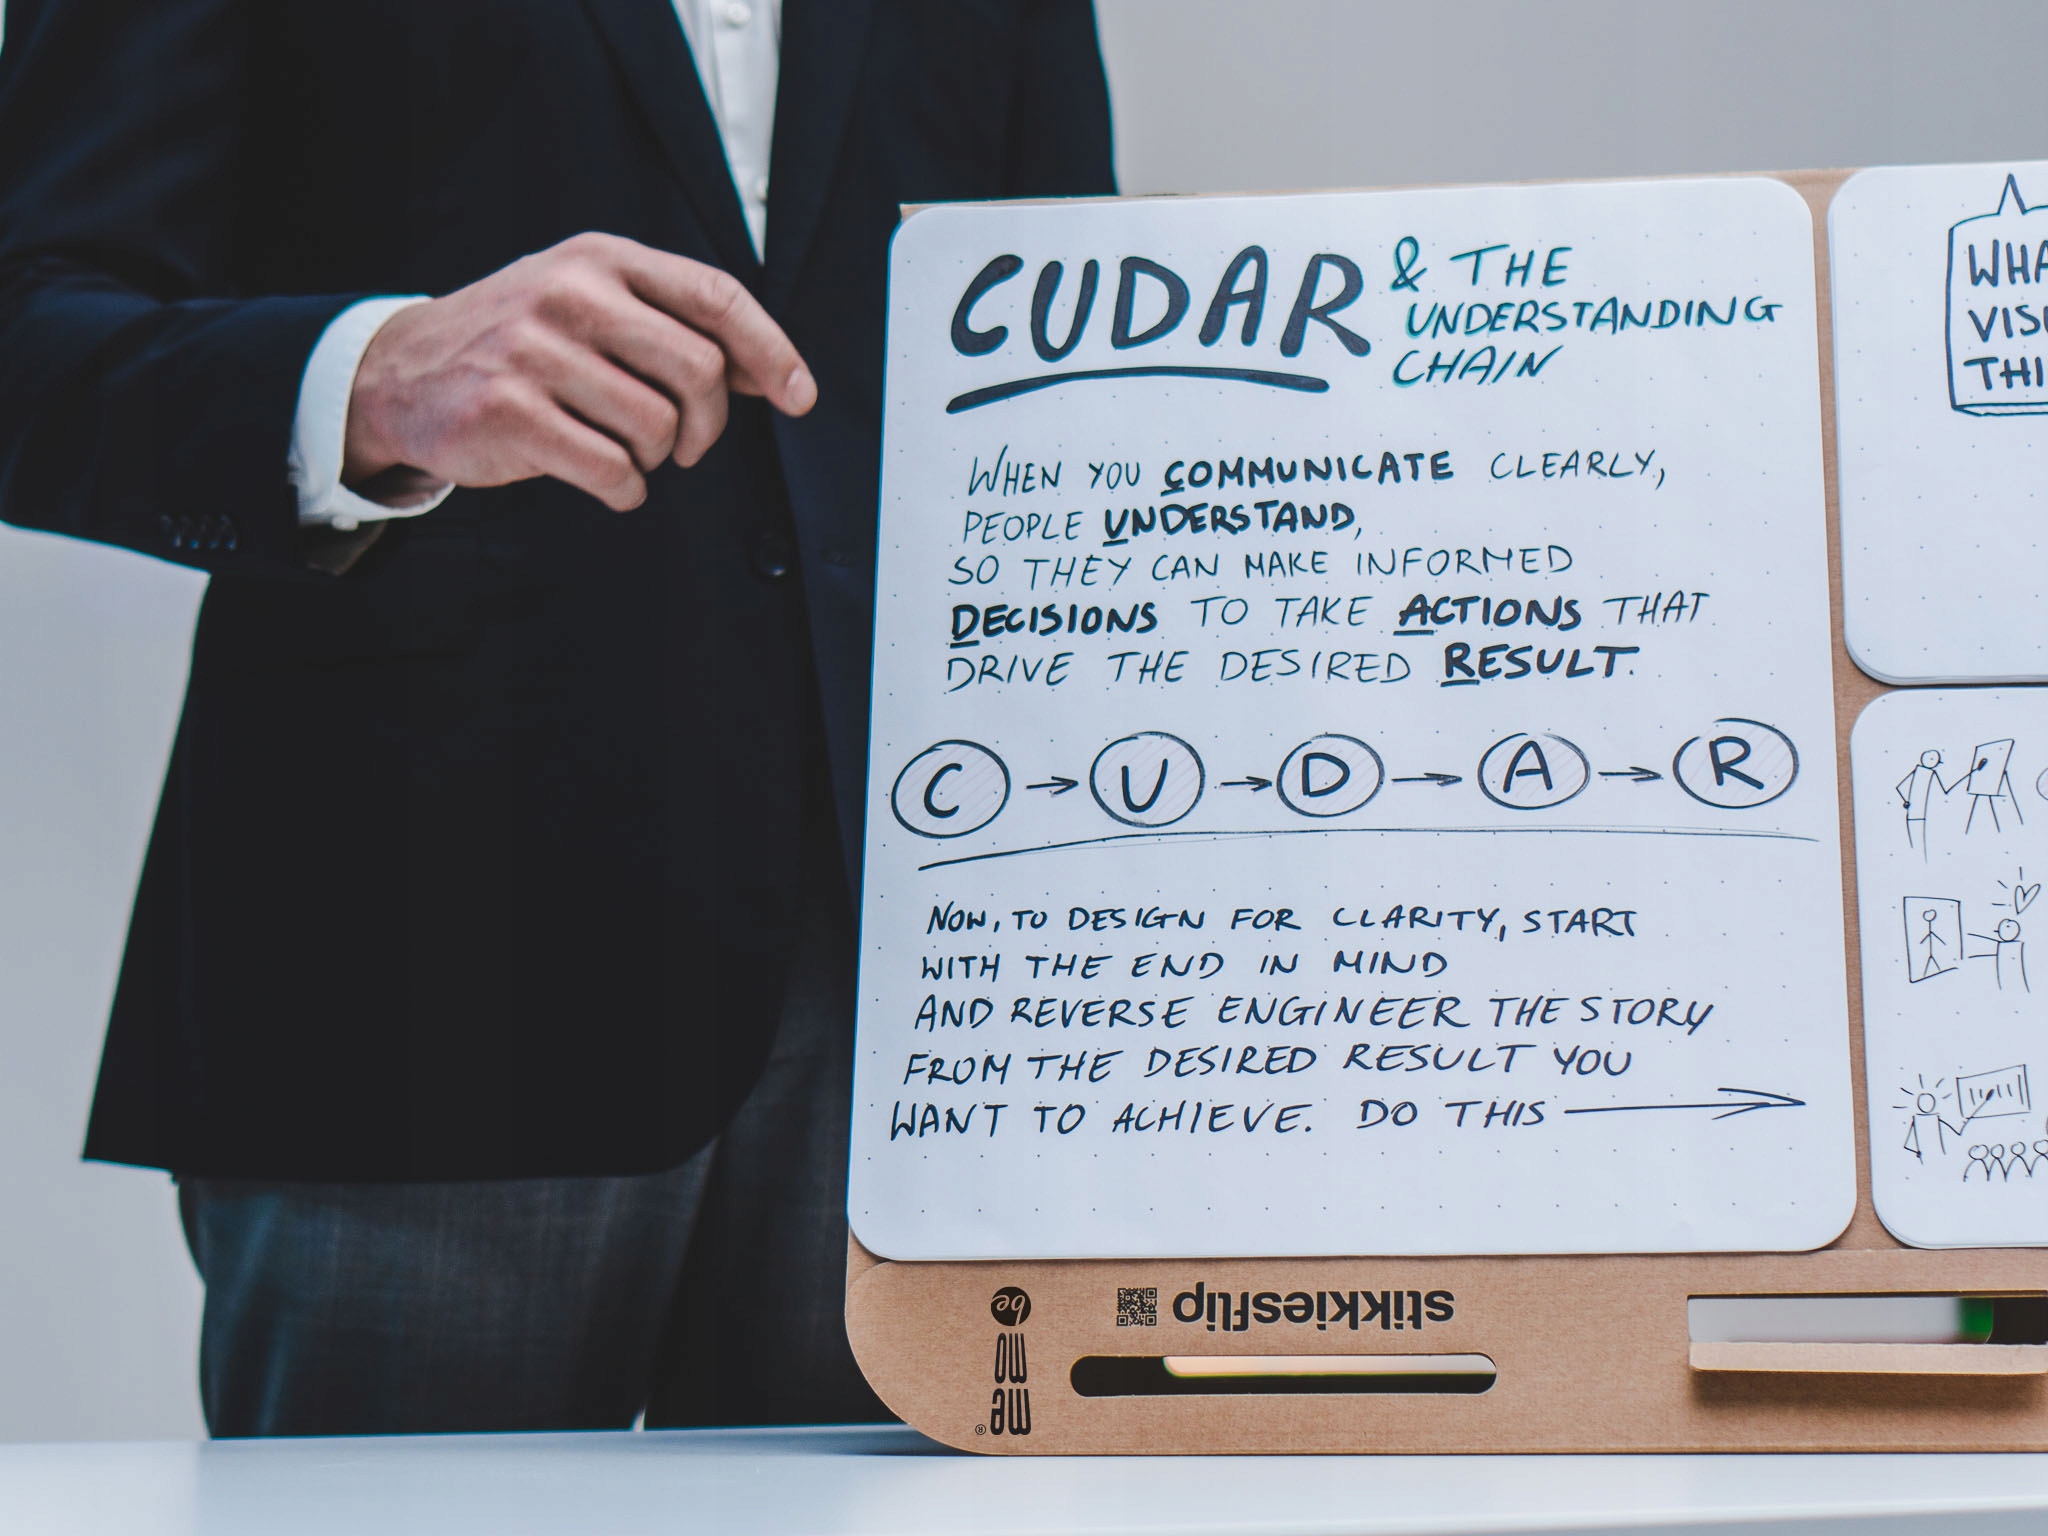 CUDAR
& THE
UNDERSTANDING
CHAIN
WHEN YOU COMMUNICATE CLEARLY,
PEOPLE UNDERSTAND,
SO THEY CAN MAKE INFORMED
DECISIONS TO TAKE ACTIONS THAT
DRIVE THE DESIRED RESULT.
C → U → D → A → R
NOW, TO DESIGN FOR CLARITY, START
WITH THE END IN MIND
AND REVERSE ENGINEER THE STORY
FROM THE DESIRED RESULT YOU
WANT TO ACHIEVE. DO THIS →
WHA
VISU
THI
stikkiesflip
be
mo
me®